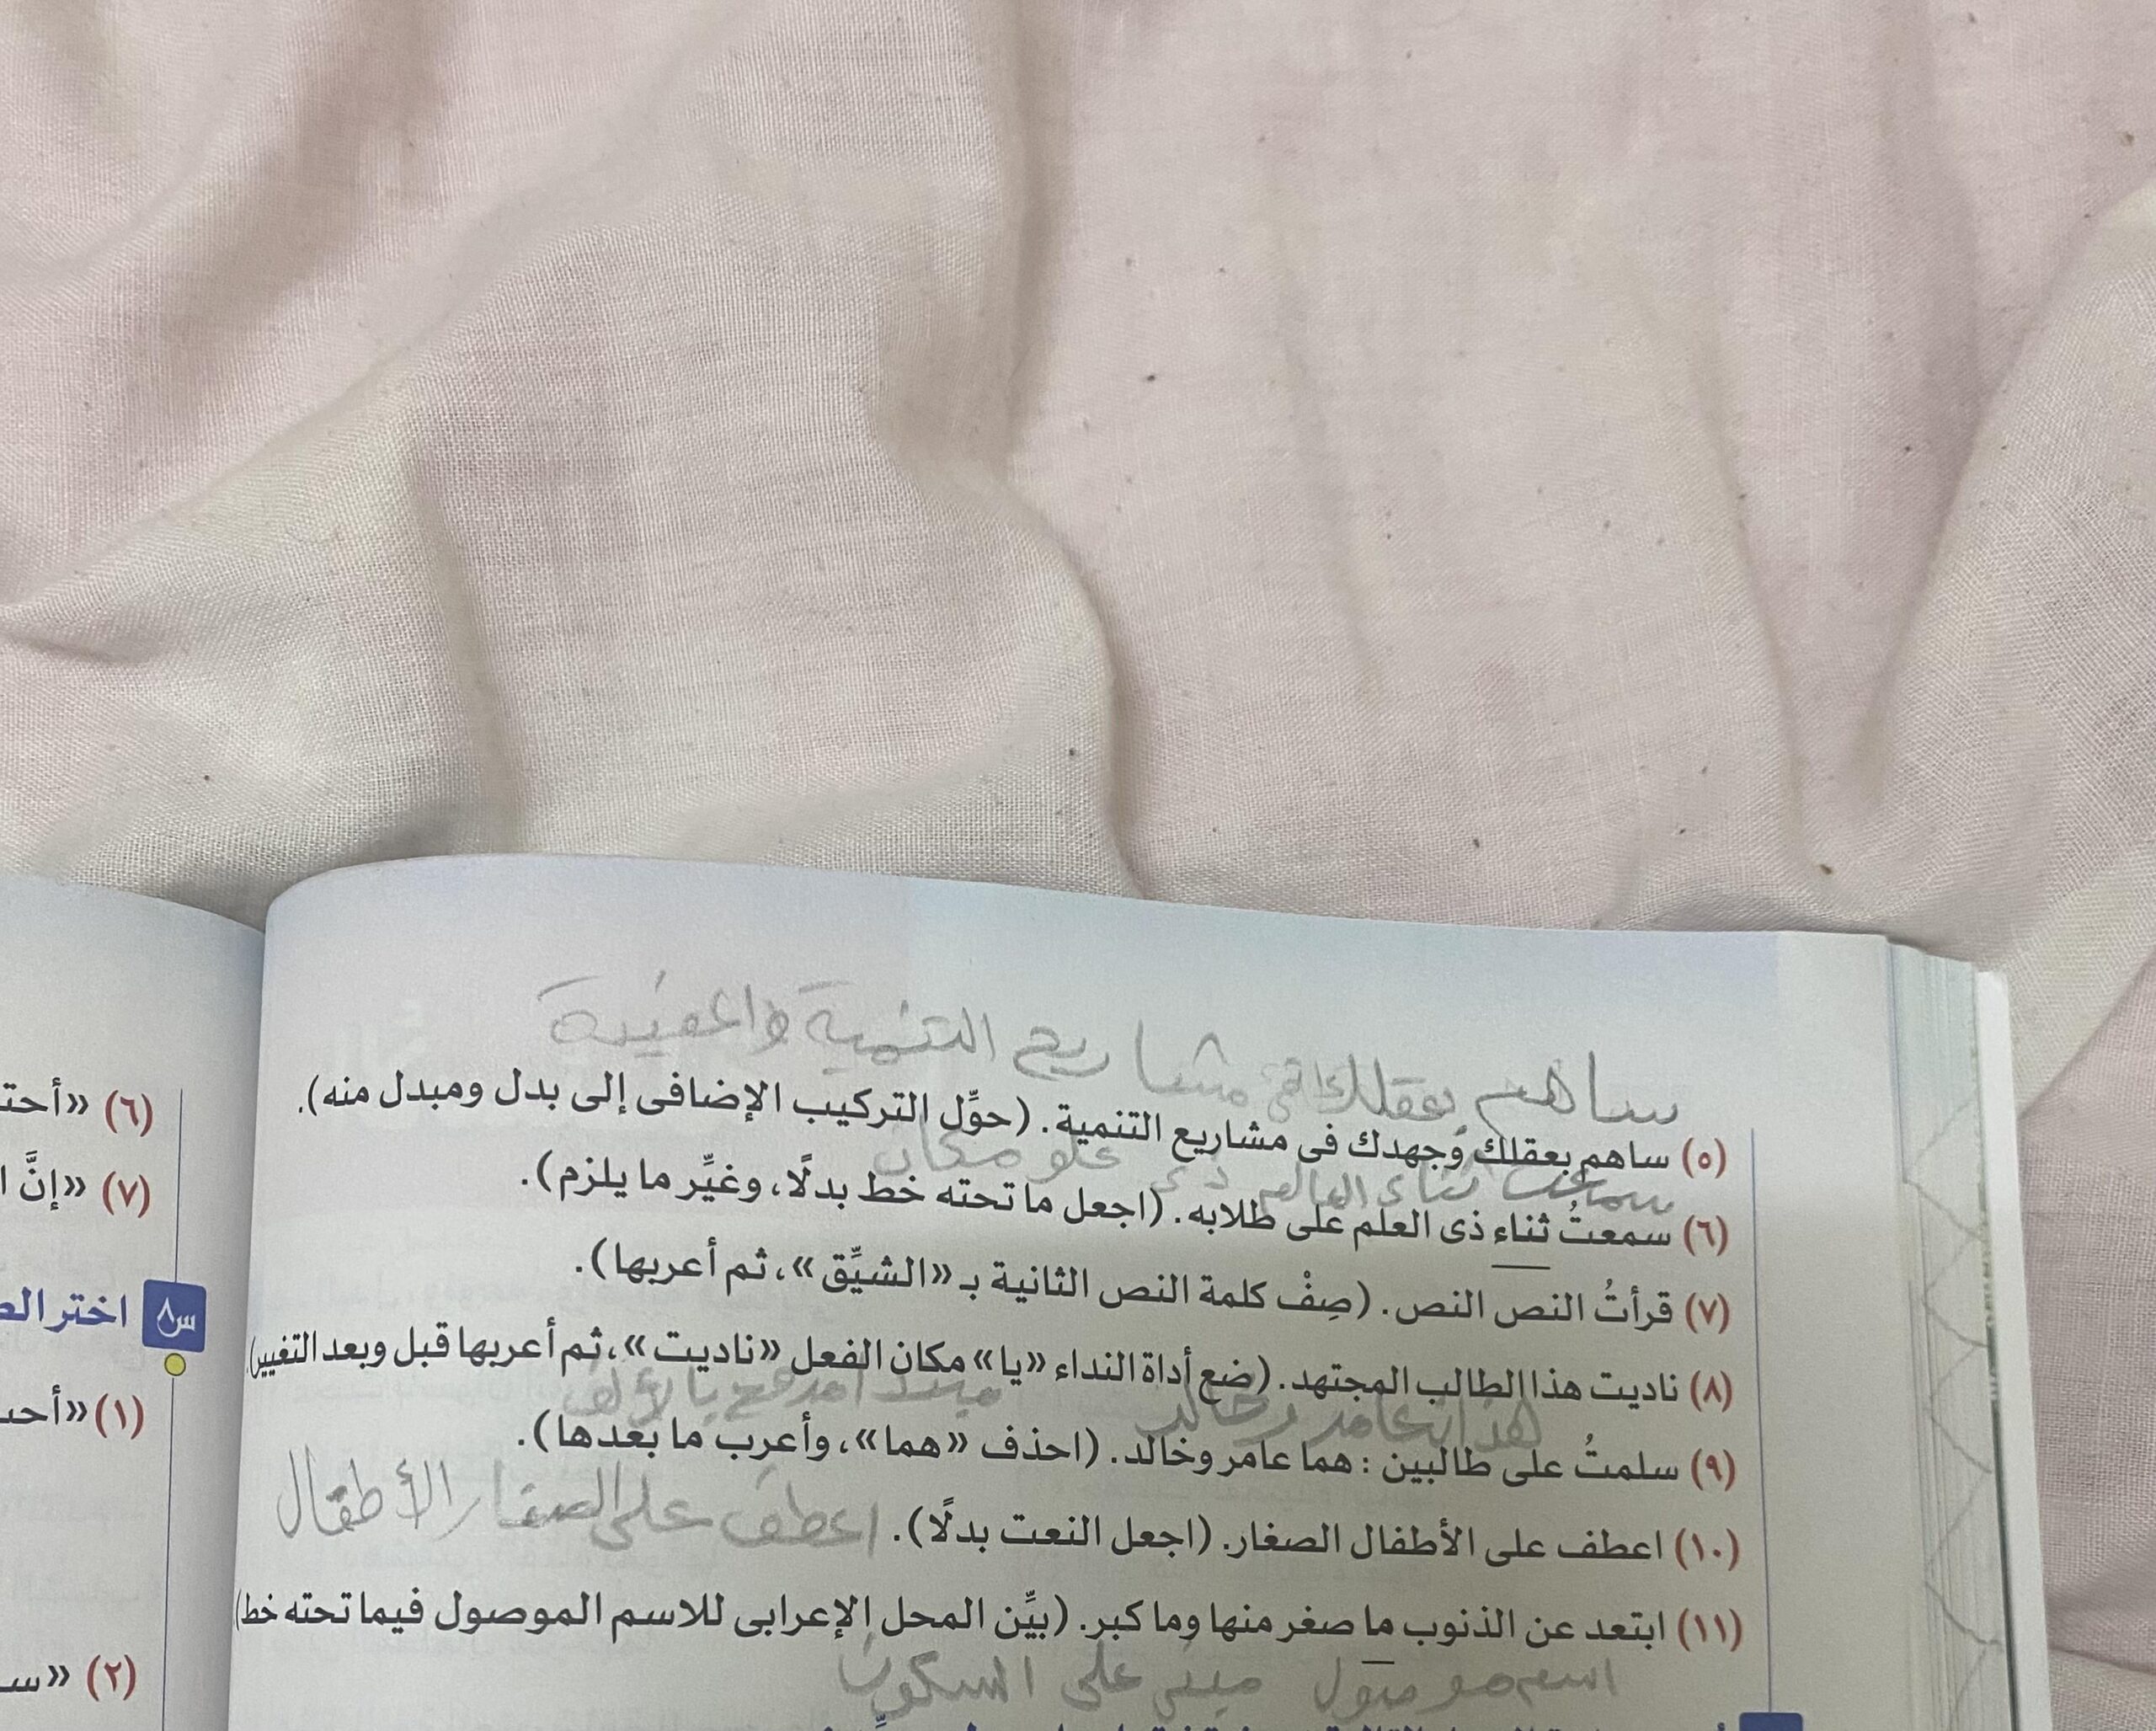 ساهم بعقلك فى مشاريع التنمية
(٥) ساهم بعقلك وجهدك فى مشاريع التنمية. (حوِّل التركيب الإضافى إلى بدل ومبدل منه).
سمعت ثناء العالم ذى علو مكان
(٦) سمعتُ ثناء ذى العلم على طلابه. (اجعل ما تحته خط بدلًا، وغيِّر ما يلزم).
(٧) قرأتُ النص النص. (صِفْ كلمة النص الثانية بـ «الشيِّق»، ثم أعربها).
(٨) ناديت هذا الطالب المجتهد. (ضع أداة النداء «يا» مكان الفعل «ناديت»، ثم أعربها قبل وبعد التغيير)
(٩) سلمتُ على طالبين : هما عامر وخالد. (احذف «هما»، وأعرب ما بعدها).
(١٠) اعطف على الأطفال الصغار. (اجعل النعت بدلًا).
اعطف على الصغار الأطفال
(١١) ابتعد عن الذنوب ما صغر منها وما كبر. (بيِّن المحل الإعرابى للاسم الموصول فيما تحته خط)
اسم موصول مبني على السكون
(٦) «أحتـ
(٧) «إنَّ ا
س٨ اختر الصـ
(١) «أحـ
(٢) «سـ